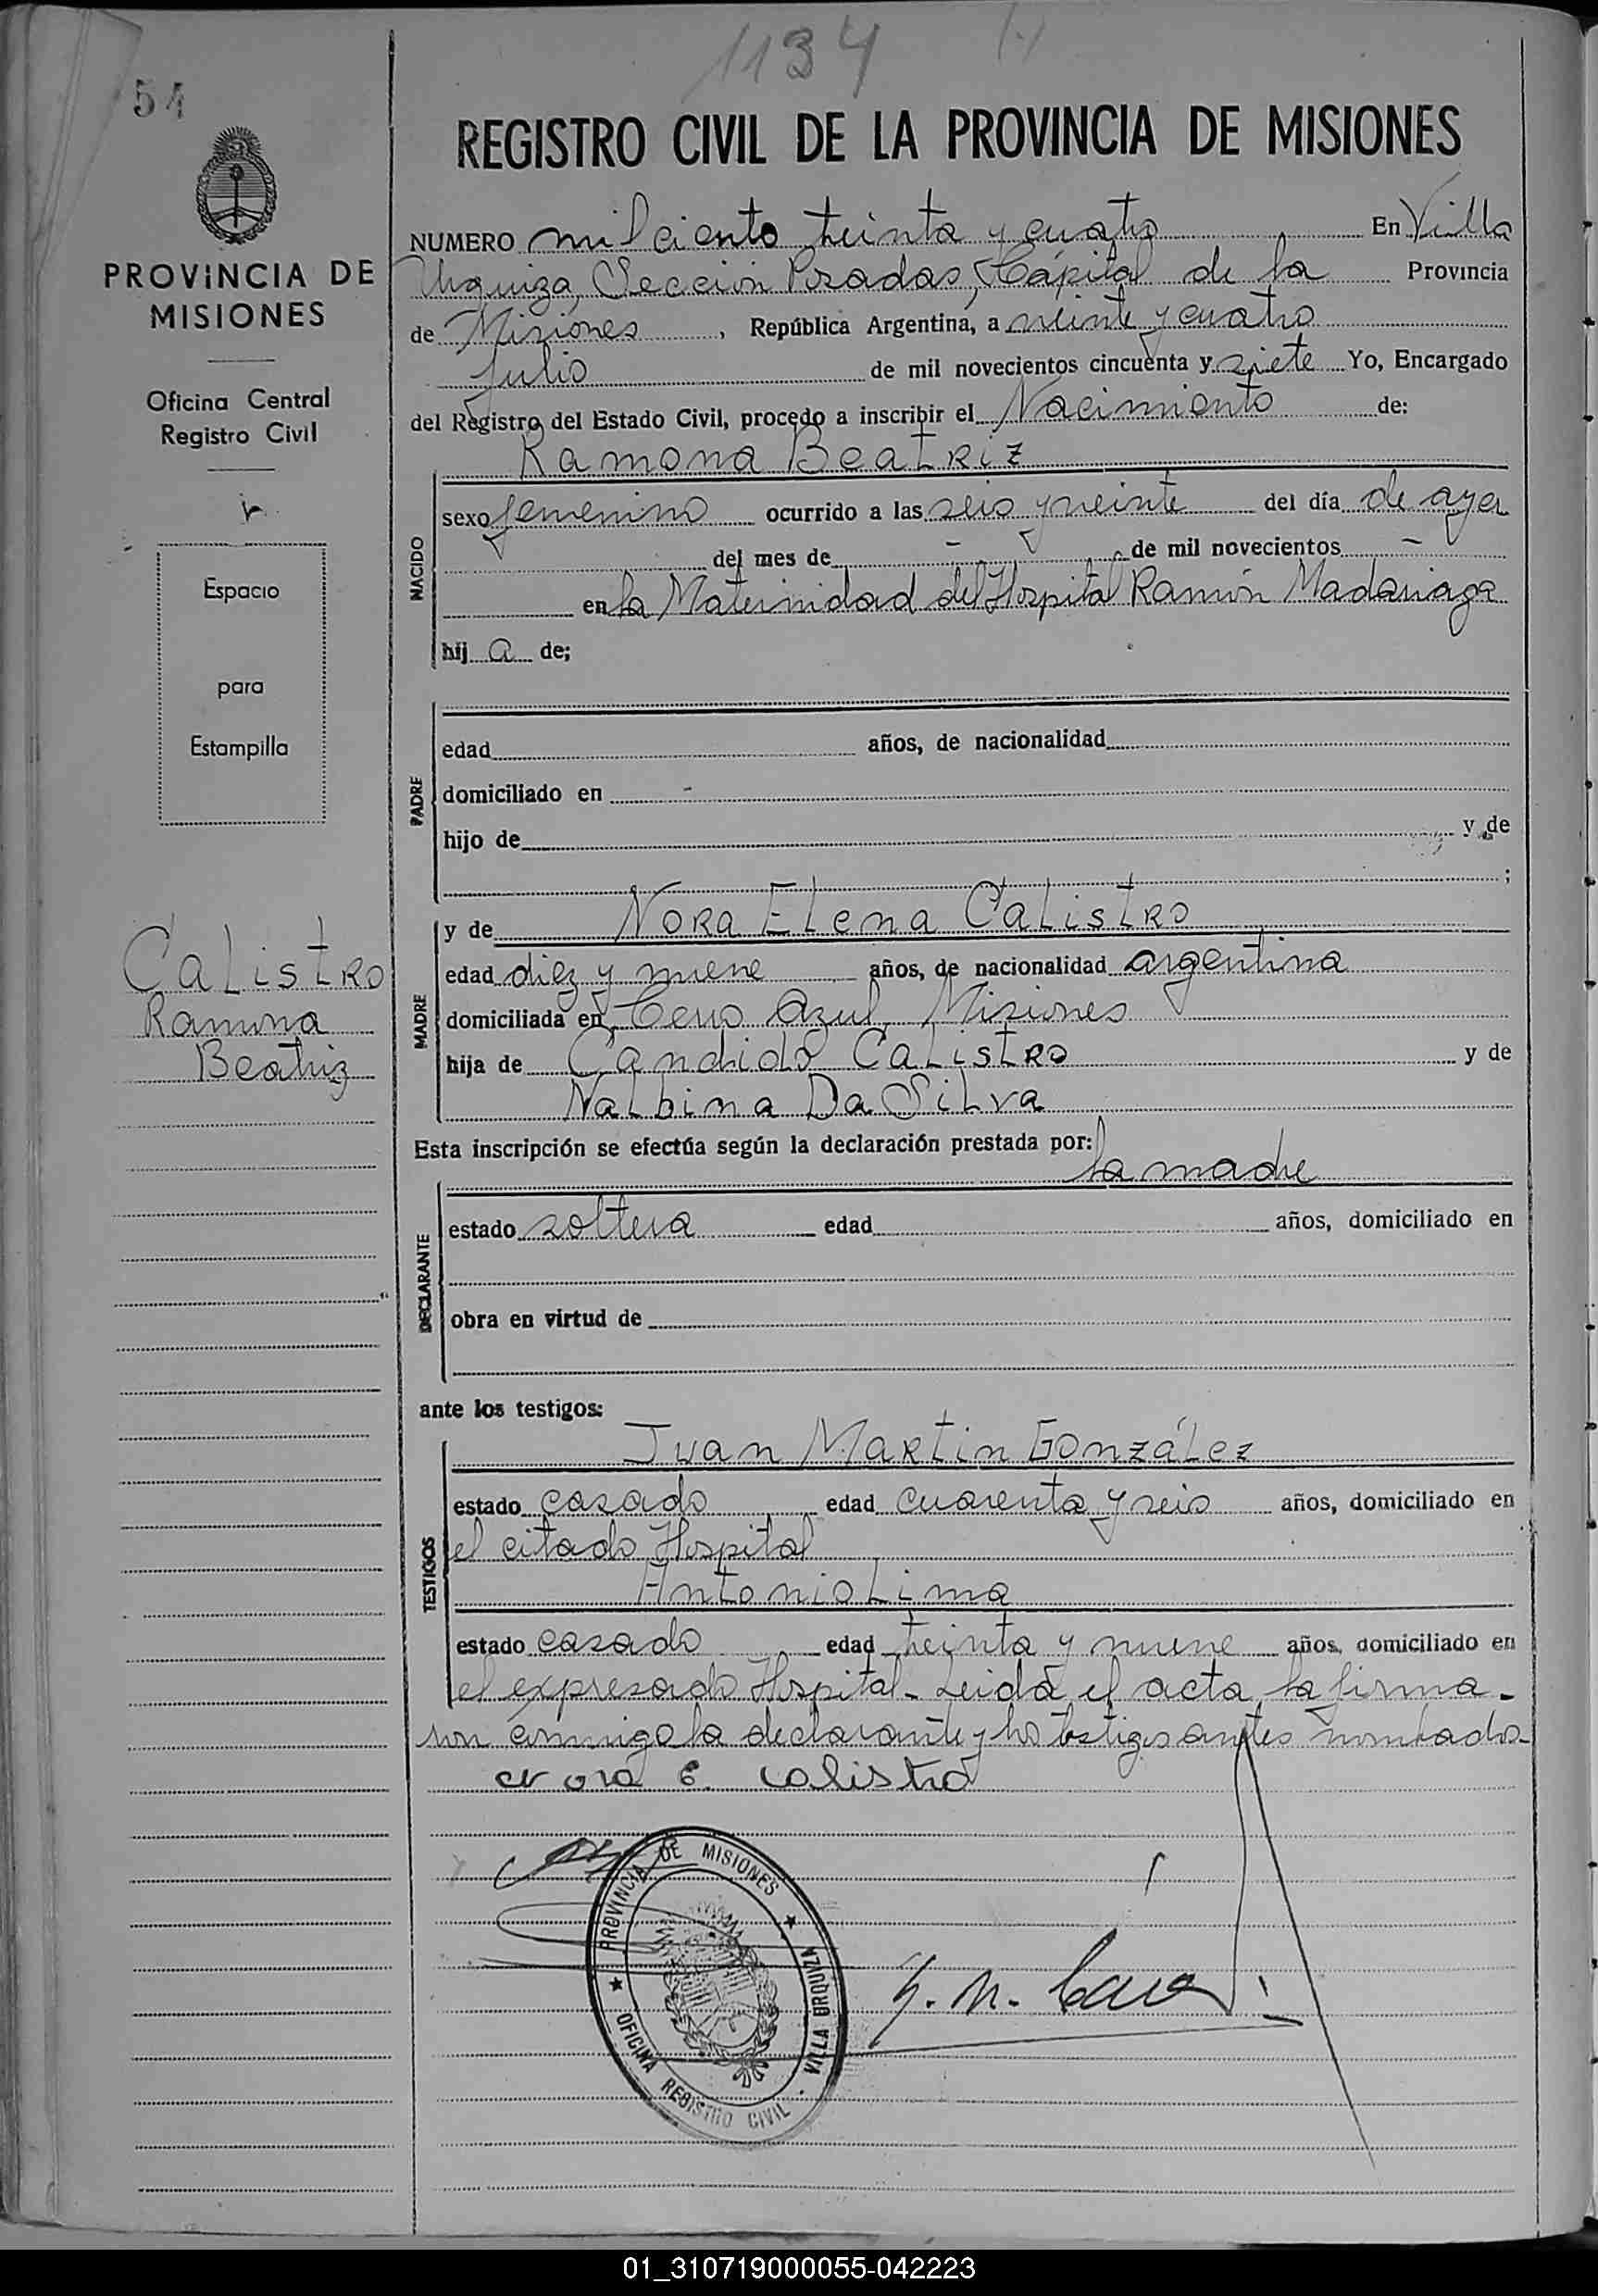 1134
54
REGISTRO CIVIL DE LA PROVINCIA DE MISIONES
PROVINCIA DE
MISIONES
Oficina Central
Registro Civil
Espacio
para
Estampilla
Calistro
Ramona
Beatriz
NUMERO mil ciento treinta y cuatro En Villa
Urquiza, Sección Posadas, Capital de la Provincia
de Misiones, República Argentina, a veinte y cuatro
Julio de mil novecientos cincuenta y siete Yo, Encargado
del Registro del Estado Civil, procedo a inscribir el Nacimiento de:
Ramona Beatriz
NACIDO
sexo femenino ocurrido a las seis y veinte del día de ayer
del mes de - de mil novecientos -
en la Maternidad del Hospital Ramón Madariaga
hij a de;
PADRE
edad años, de nacionalidad
domiciliado en -
hijo de y de
;
MADRE
y de Nora Elena Calistro
edad diez y nueve años, de nacionalidad argentina
domiciliada en Cerro Azul, Misiones
hija de Candido Calistro y de
Nalbina Da Silva
Esta inscripción se efectúa según la declaración prestada por:
la madre
DECLARANTE
estado soltera edad años, domiciliado en
obra en virtud de
ante los testigos:
Juan Martin González
TESTIGOS
estado casado edad cuarenta y seis años, domiciliado en
el citado Hospital
Antonio Lima
estado casado edad treinta y nueve años, domiciliado en
el expresado Hospital - Leida el acta, la firma-
ron conmigo la declarante y los testigos antes nombrados-
Nora E. Calistro
PROVINCIA DE MISIONES ★ VILLA URQUIZA - OFICINA REGISTRO CIVIL ★
01_310719000055-042223